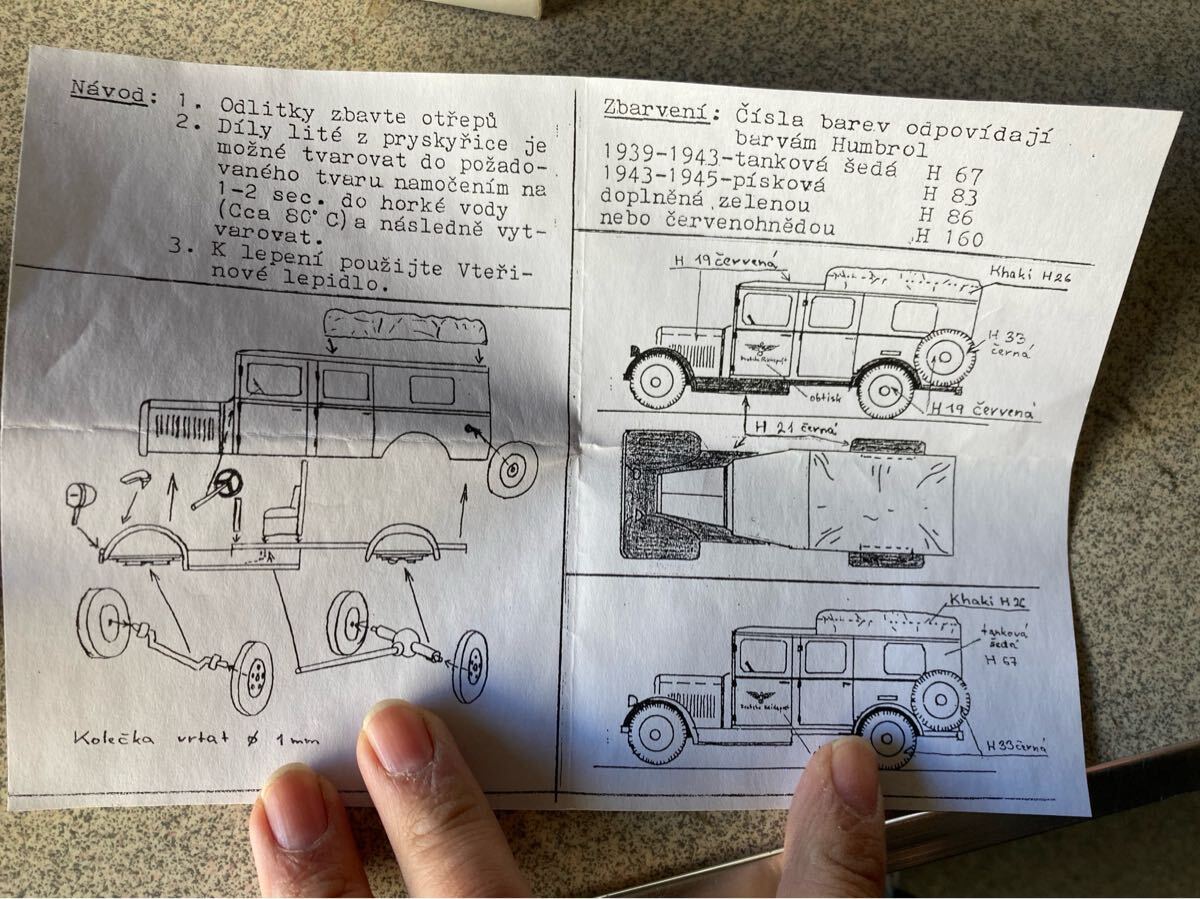 Návod: 1. Odlitky zbavte otřepů
2. Díly lité z pryskyřice je
možné tvarovat do požado-
vaného tvaru namočením na
1-2 sec. do horké vody
(Cca 80°C) a následně vyt-
varovat.
3. K lepení použijte Vteři-
nové lepidlo.
Kolečka vrtat ø 1mm
Zbarvení: Čísla barev odpovídají
barvám Humbrol
1939-1943-tanková šedá H 67
1943-1945-písková H 83
doplněná zelenou H 86
nebo červenohnědou H 160
H 19 červená
Khaki H26
H 33,
černá
Deutsche Reichspost
obtisk
H 19 červená
H 21 černá
Khaki H 26
tanková
šedá
H 67
Deutsche Reichspost
H 33 černá